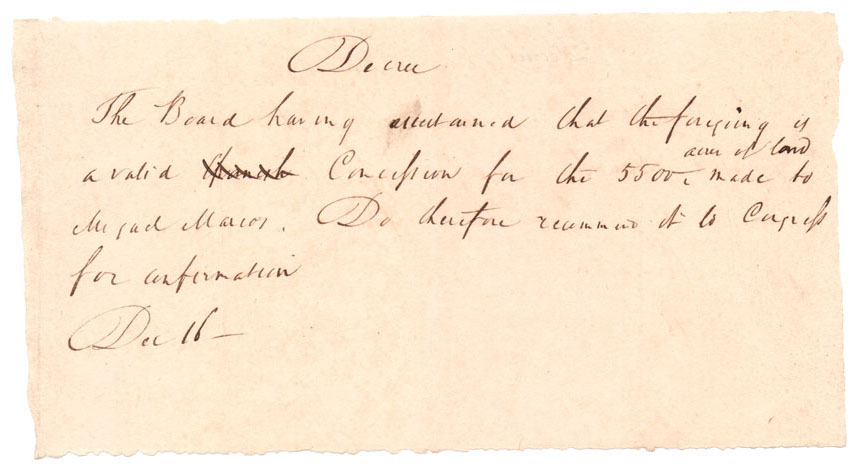 Decree
The Board having ascertained that the foregoing is
a valid Spanish Concession for the 5500 acres of land made to
Miguel Marcos. Do therefore recommend it to Congress
for confirmation
Dec 16 —